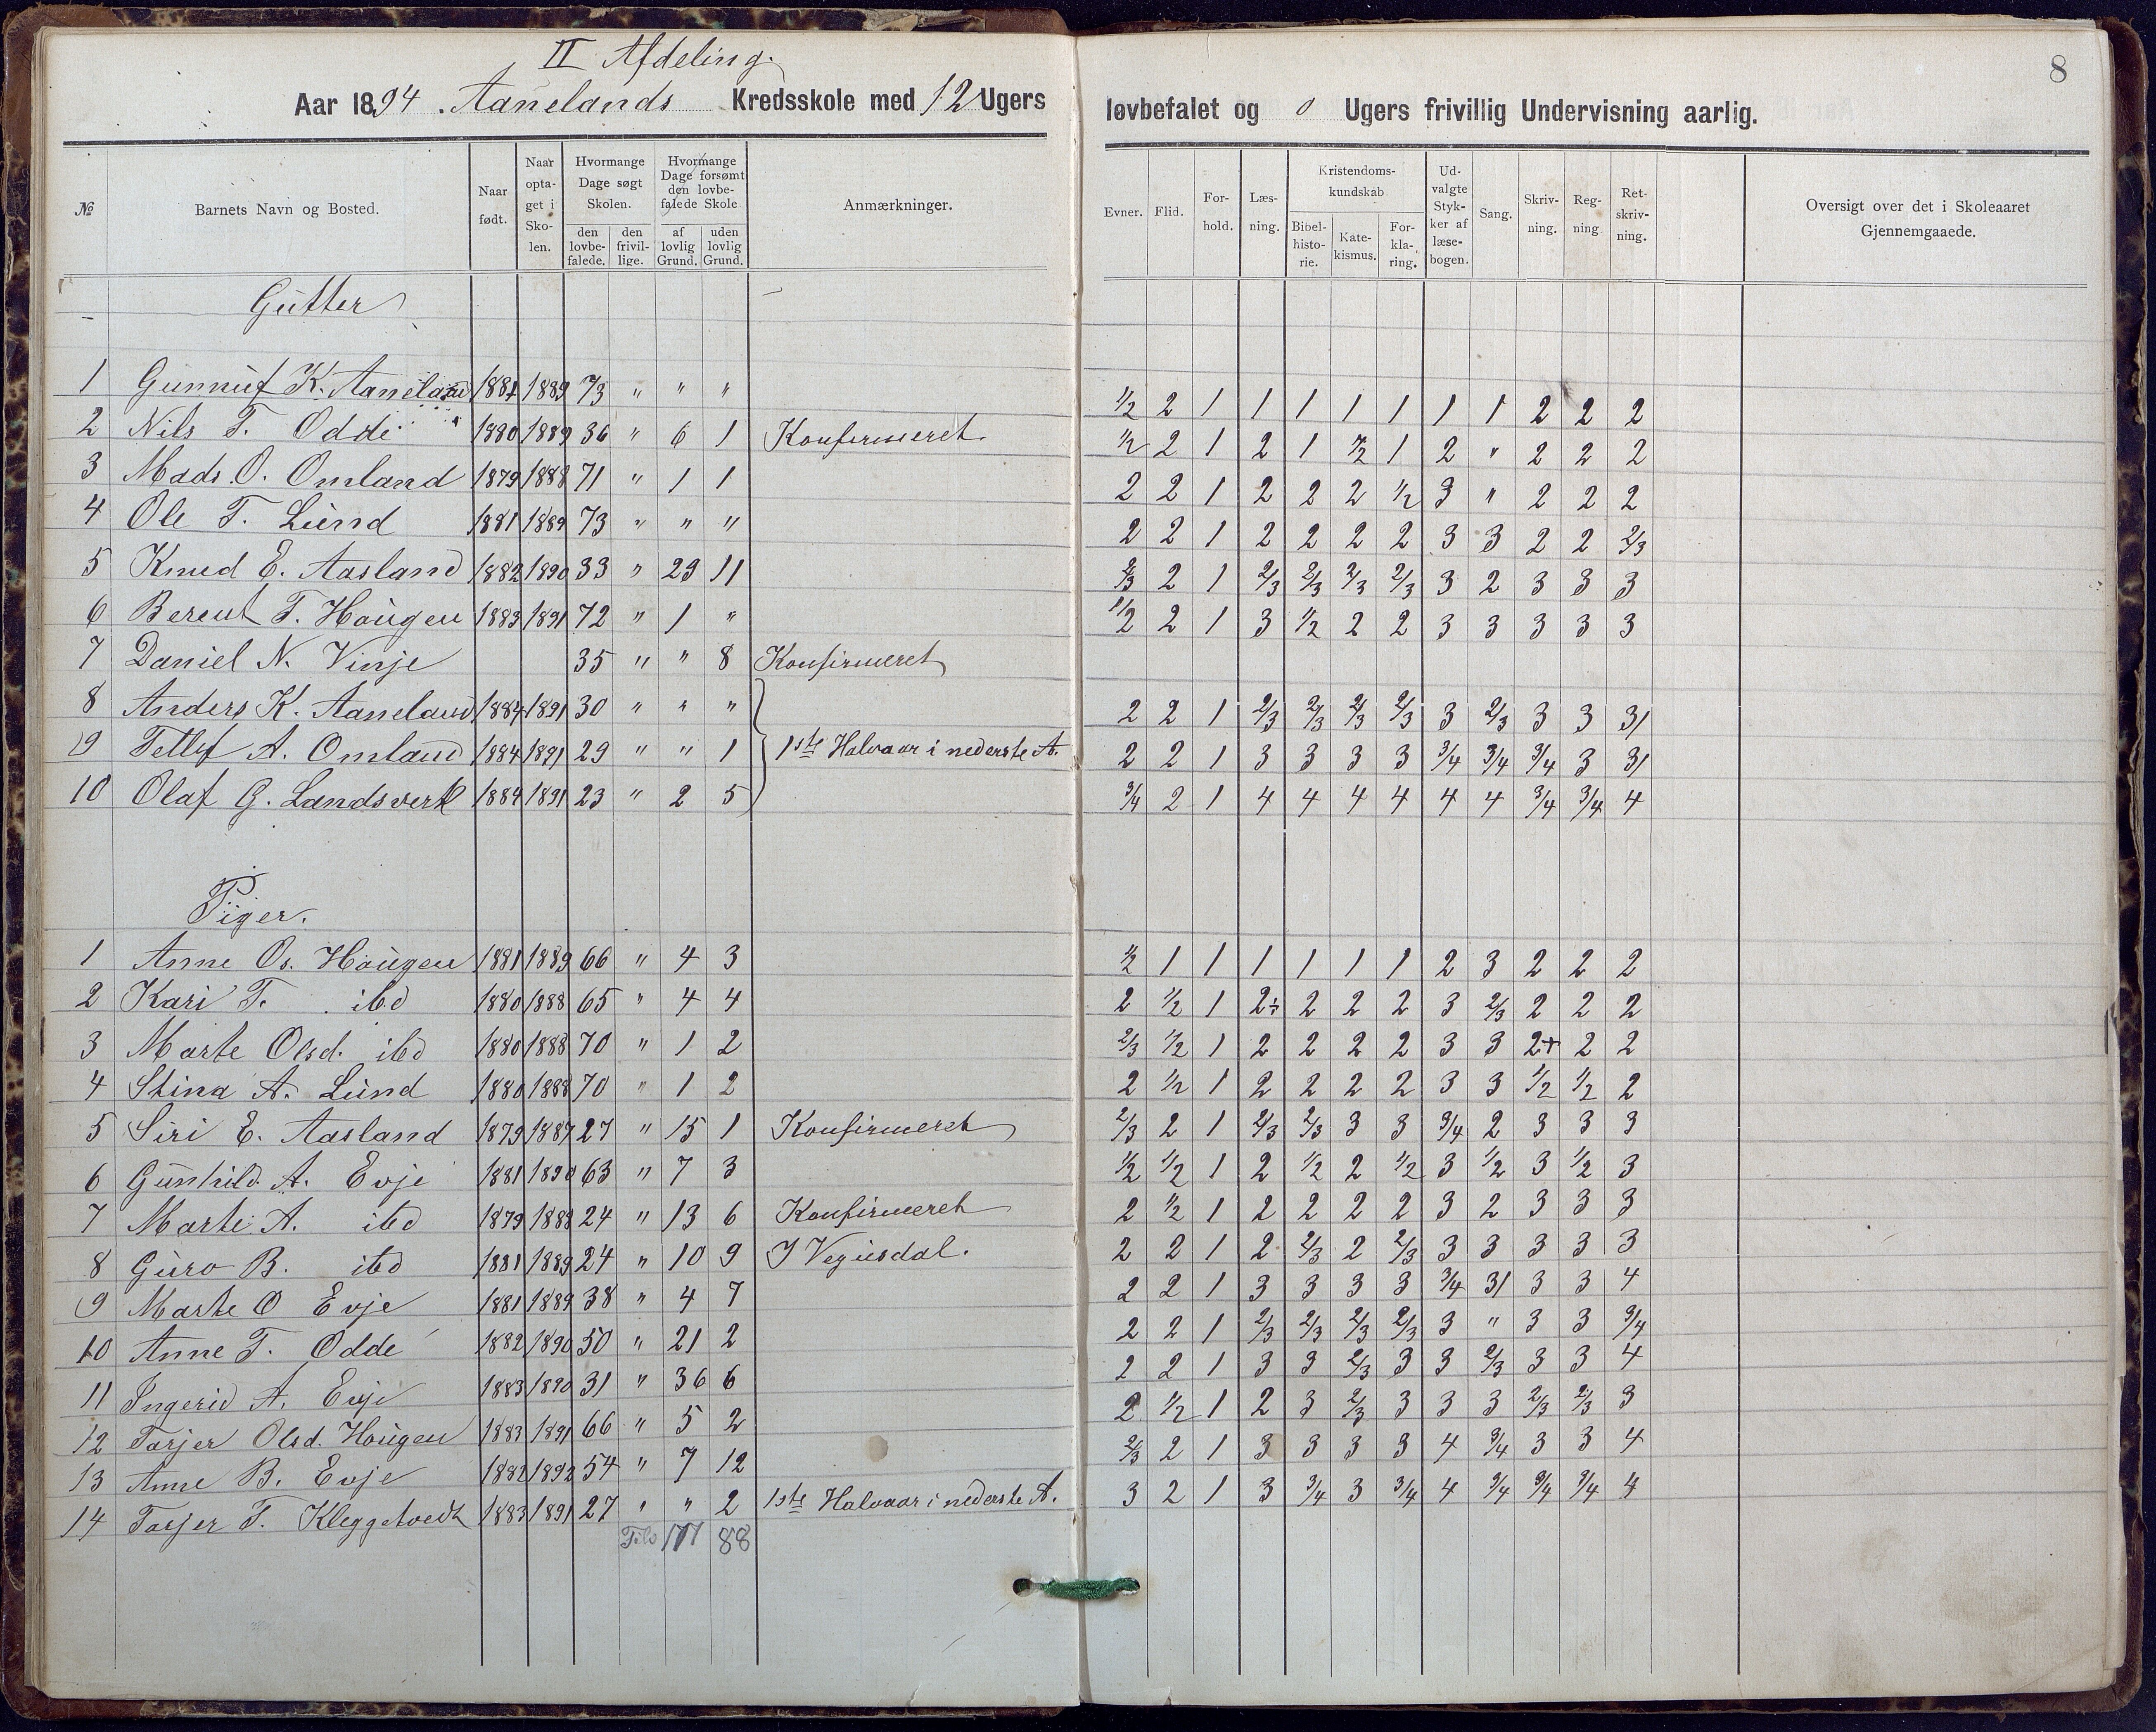 II Afdeling.
8
Aar 1894. Aanelands Kredsskole med 12 Ugers løvbefalet og 0 Ugers frivillig Undervisning aarlig.
№ Barnets Navn og Bosted. Naar født. Naar optaget i Skolen. Hvormange Dage søgt Skolen. den lovbefalede. den frivillige. Hvormange Dage forsømt den lovbefalede Skole af lovlig Grund. uden lovlig Grund. Anmærkninger. Evner. Flid. Forhold. Læsning. Kristendomskundskab Bibelhistorie. Katekismus. Forklaring. Udvalgte Stykker af læsebogen. Sang. Skrivning. Regning Retskrivning. Oversigt over det i Skoleaaret Gjennemgaaede.
Gutter
1 Gunnuf K. Aaneland 1881 1889 73 " " " 1/2 2 1 1 1 1 1 1 1 2 2 2
2 Nils T. Odde 1880 1889 36 " 6 1 Konfirmeret 1/2 2 1 2 1 1/2 1 2 " 2 2 2
3 Mads O. Omland 1879 1888 71 " 1 1 2 2 1 2 2 2 1/2 3 " 2 2 2
4 Ole T. Lund 1881 1889 73 " " " 2 2 1 2 2 2 2 3 3 2 2 2/3
5 Knud E. Aasland 1882 1890 33 " 29 11 2/3 2 1 2/3 2/3 2/3 2/3 3 2 3 3 3
6 Berent T. Hougen 1883 1891 72 " 1 " 1/2 2 1 3 1/2 2 2 3 3 3 3 3
7 Daniel N. Vinje 35 " " 8 Konfirmeret
8 Anders K. Aaneland 1884 1891 30 " " " 2 2 1 2/3 2/3 2/3 2/3 3 2/3 3 3 31
9 Tellef A. Omland 1884 1891 29 " " 1 1ste Halvaar i nederste A. 2 2 1 3 3 3 3 3/4 3/4 3/4 3 31
10 Olaf G. Landsverk 1884 1891 23 " 2 5 3/4 2 1 4 4 4 4 4 4 3/4 3/4 4
Piger.
1 Anne Os. Hougen 1881 1889 66 " 4 3 1/2 1 1 1 1 1 1 2 3 2 2 2
2 Kari T. ibd 1880 1888 65 " 4 4 2 1/2 1 2÷ 2 2 2 3 2/3 2 2 2
3 Marte Olsd. ibd 1880 1888 70 " 1 2 2/3 1/2 1 2 2 2 2 3 3 2+ 2 2
4 Stina A. Lund 1880 1888 70 " 1 2 2 1/2 1 2 2 2 2 3 3 1/2 1/2 2
5 Siri E. Aasland 1879 1887 27 " 15 1 Konfirmeret 2/3 2 1 2/3 2/3 3 3 3/4 2 3 3 3
6 Gunhild A. Evje 1881 1890 63 " 7 3 1/2 1/2 1 2 1/2 2 1/2 3 1/2 3 1/2 3
7 Marte A. ibd 1879 1888 24 " 13 6 Konfirmeret 2 1/2 1 2 2 2 2 3 2 3 3 3
8 Guro B. ibd 1881 1889 24 " 10 9 I Vegusdal. 2 2 1 2 2/3 2 2/3 3 3 3 3 3
9 Marte O Evje 1881 1889 38 " 4 7 2 2 1 3 3 3 3 3/4 31 3 3 4
10 Anne T. Odde 1882 1890 50 " 21 2 2 2 1 2/3 2/3 2/3 2/3 3 " 3 3 3/4
11 Ingerid A. Evje 1883 1890 31 " 36 6 2 2 1 3 3 2/3 3 3 2/3 3 3 4
12 Tarjer Olsd. Hougen 1883 1891 66 " 5 2 2 1/2 1 2 3 2/3 3 3 3 2/3 2/3 3
13 Anne B. Evje 1882 1892 54 " 7 12 2/3 2 1 3 3 3 3 4 3/4 3 3 4
14 Tarjer T. Kleggetvedt 1883 1891 27 " " 2 1ste Halvaar i nederste A. 3 2 1 3 3/4 3 3/4 4 3/4 3/4 3/4 4
177 88